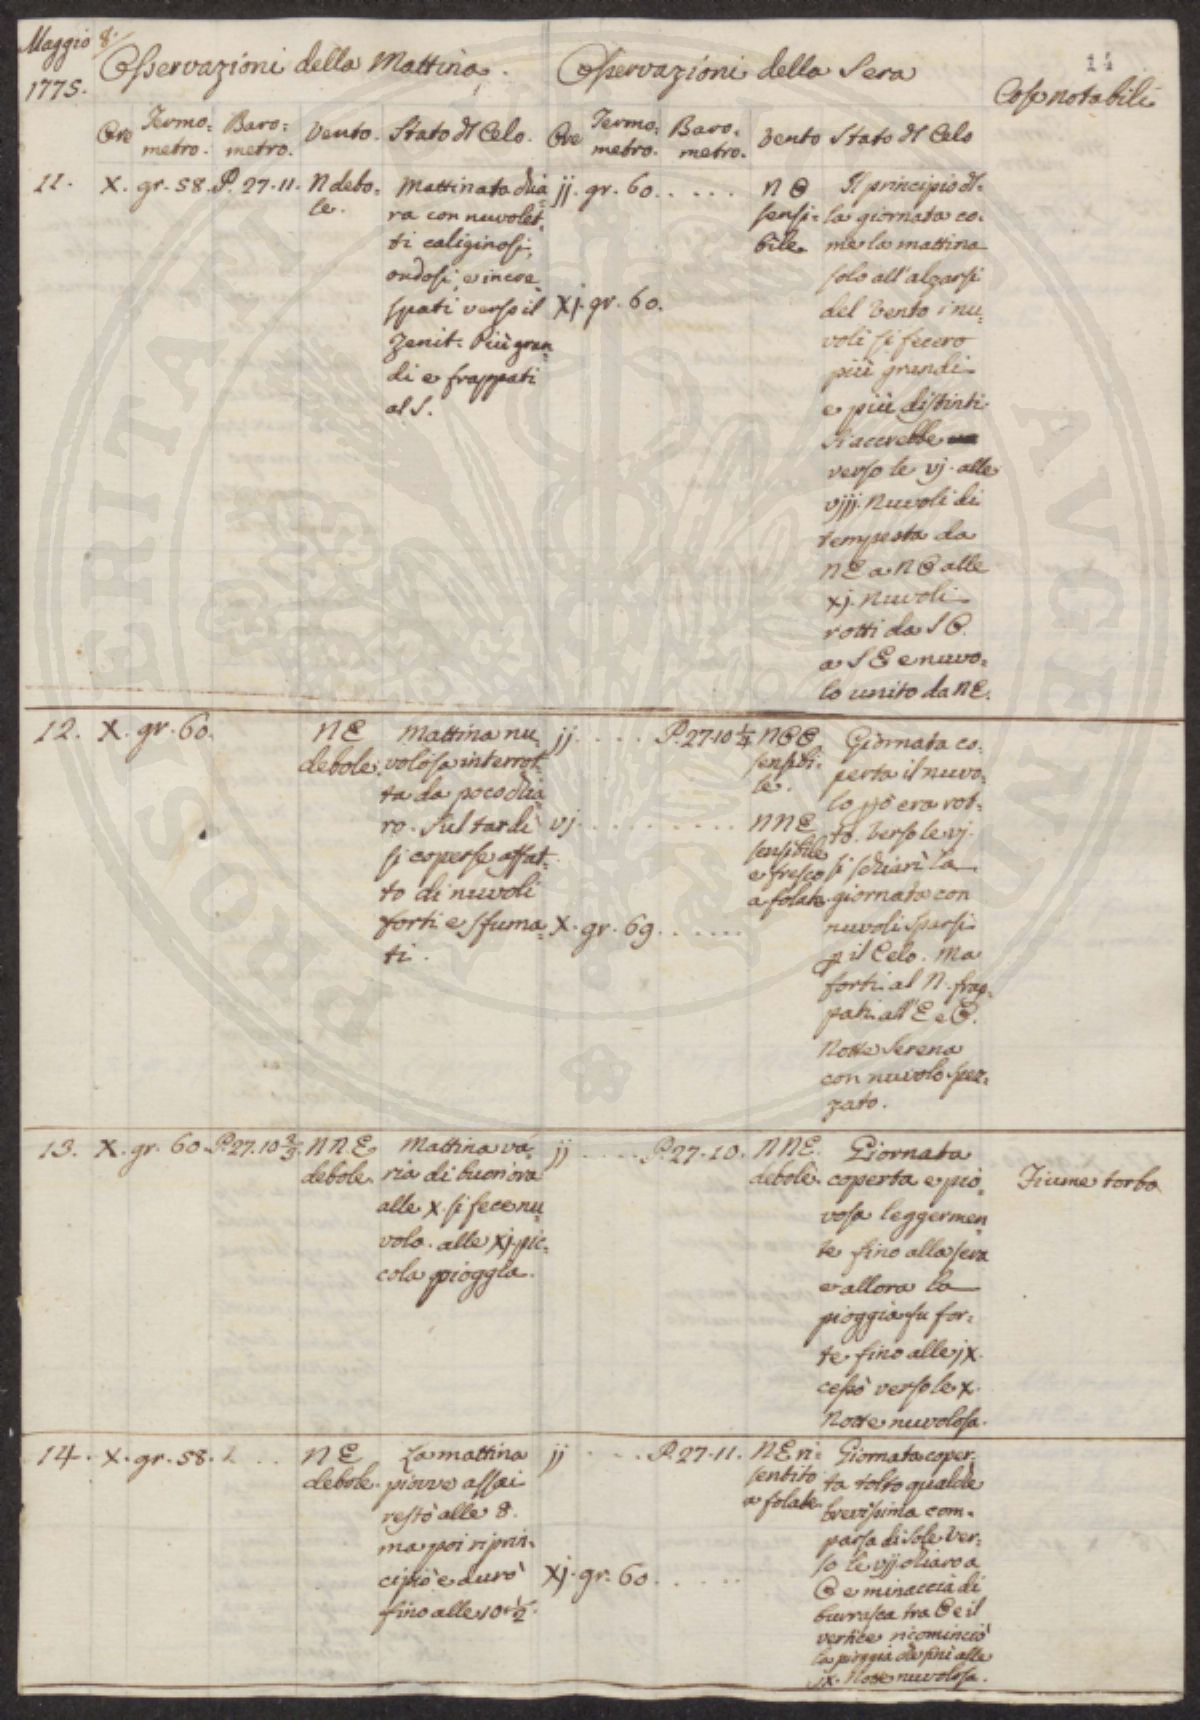 Maggio 8.
1775.
Osservazioni della Mattina.
Osservazioni della Sera
14
Cose notabili
Ore Termo=metro. Baro=metro. Vento. Stato dl Celo. Ore Termo=metro. Baro=metro. Vento Stato dl Celo
11. X. gr. 58. P. 27. 11. N debo=
le.
Mattinata chia
ra con nuvolet=
ti caliginosi,
ondosi, e incre=
spati verso il
Zenit. Più gran=
di e frappati
al S.
jj. gr. 60. . . . .
Xj. gr. 60.
N O
sensi=
bile
Il principio dl=
la giornata co=
me la mattina
solo all'alzarsi
del Vento i nu=
voli si fecero
più grandi
e più distinti
verso le vj. alle
vjjj. Nuvoli di
tempesta da
NE a NO alle
xj. Nuvoli
rotti da S O.
a S E e nuvo=
lo unito da NE.
12. X. gr. 60.
N E
debole.
Mattina nu=
volosa interrot=
ta da poco chia=
ro. Sul tardi
si coperse affat=
to di nuvoli
forti e sfuma=
ti.
jj. . . . . P. 27. 10 1/4
vj. . . . . . . . .
X. gr. 69. . . . . .
sensibi=
le.
NNE
sensibile
e fresco
a folate.
Giornata co=
perta il nuvo=
lo pò era rot=
to. Verso le vj.
si schiarì la
giornata con
nuvoli sparsi
p il Celo. Ma
forti al N. frap=
pati all'E e O.
Notte Serena
con nuvolo spez=
zato.
13. X. gr. 60. P. 27. 10 2/3. N N E
debole.
Mattina va=
ria di buon'ora
alle X. si fece nu=
volo. alle Xj. pic=
cola pioggia.
jj . . . . . P. 27. 10. NNE.
debole.
Giornata
coperta e pio=
vosa leggermen=
te fino alla sera
e allora la
pioggia fu for=
te fino alle jx.
cessò verso le x.
Notte nuvolosa.
Fiume torbo
14. X. gr. 58. . . .
N E
debole.
La mattina
piovve assai
restò alle 8.
ma poi riprin=
cipiò e durò
fino alle 10 1/2.
jj . . . . P. 27. 11.
Xj. gr. 60. . . . . .
N E ri=
sentito
a folate.
Giornata coper=
ta tolto qualche
brevissima com=
parsa di Sole ver=
so le vjj. chiaro a
O e minaccia di
burrasca tra O e il
vertice ricominciò
la pioggia che finì alle
jx. Notte nuvolosa.